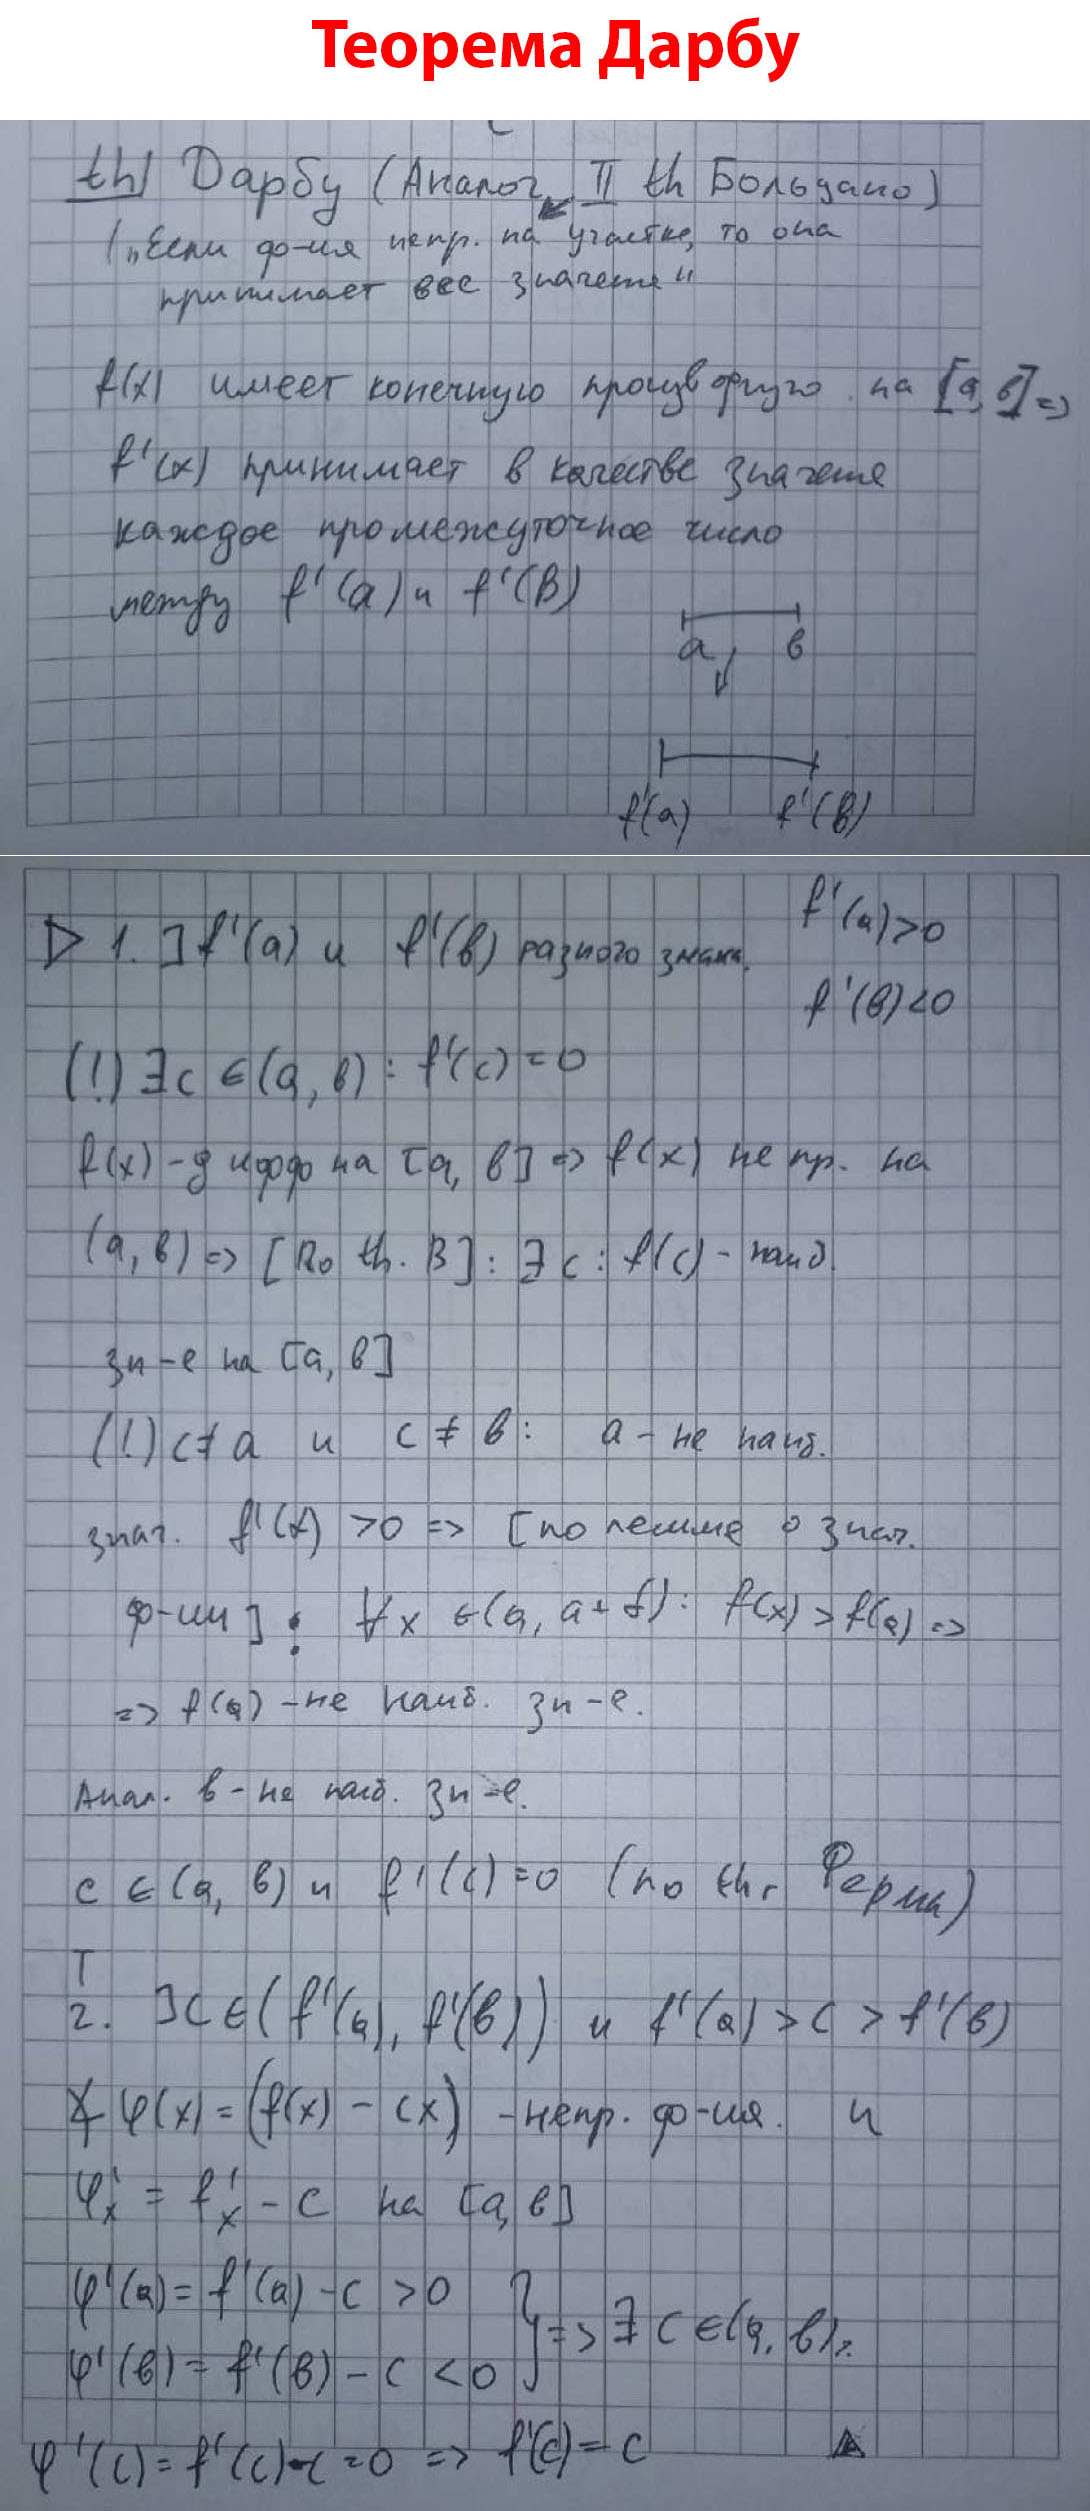 Теорема Дарбу
th Дарбу (Аналог II th Больцано)
("Если ф-ия непр. на участке, то она
принимает все значения"
f(x) имеет конечную производную на [a, b] =>
f'(x) принимает в качестве значения
каждое промежуточное число
между f'(a) и f'(b)
a b
f'(a) f'(b)
▷ 1. ] f'(a) и f'(b) разного знака. f'(a)>0
f'(b)<0
(!) ∃c ∈ (a, b) : f'(c) = 0
f(x) - дифф на [a, b] => f(x) непр. на
(a, b) => [по th. В] : ∃ c : f(c) - наиб.
зн-е на [a, b]
(!) c ≠ a и c ≠ b : a - не наиб.
знач. f'(x) > 0 => [по лемме о знач.
ф-ии] : ∀x ∈ (a, a + δ) : f(x) > f(a) =>
=> f(a) - не наиб. зн-е.
Анал. b - не наиб. зн-е.
c ∈ (a, b) и f'(c) = 0 (по th Ферма)
2. ] C ∈ (f'(a), f'(b)) и f'(a) > C > f'(b)
φ(x) = (f(x) - Cx) - непр. ф-ия. и
φ'x = f'x - C на [a, b]
φ'(a) = f'(a) - C > 0
φ'(b) = f'(b) - C < 0 } => ∃ c ∈ (a, b) :
φ'(c) = f'(c) - C = 0 => f'(c) = C